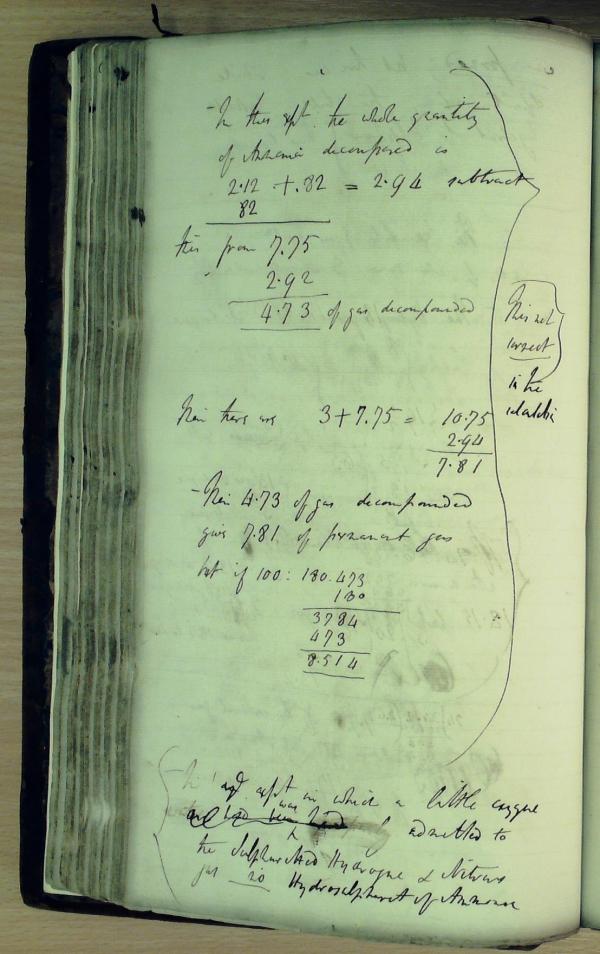 In this expt. the whole quantity
of Ammonia decomposed is
2.12 + .82 = 2.94 subtract
82
this from 7.75
2.92
4.73 of gas decompounded
This not
correct
in the
3 + 7.75 = 10.75
2.94
7.81
- Then 4.73 of gas decompounded
give 7.81 of permanent gas
but if 100 : 180. 473
180
3784
473
8.514
expt in which a little oxygene
was
admitted to
the Sulphurated Hydrogene & Nitrous
gas no Hydrosulphuret of Ammonia